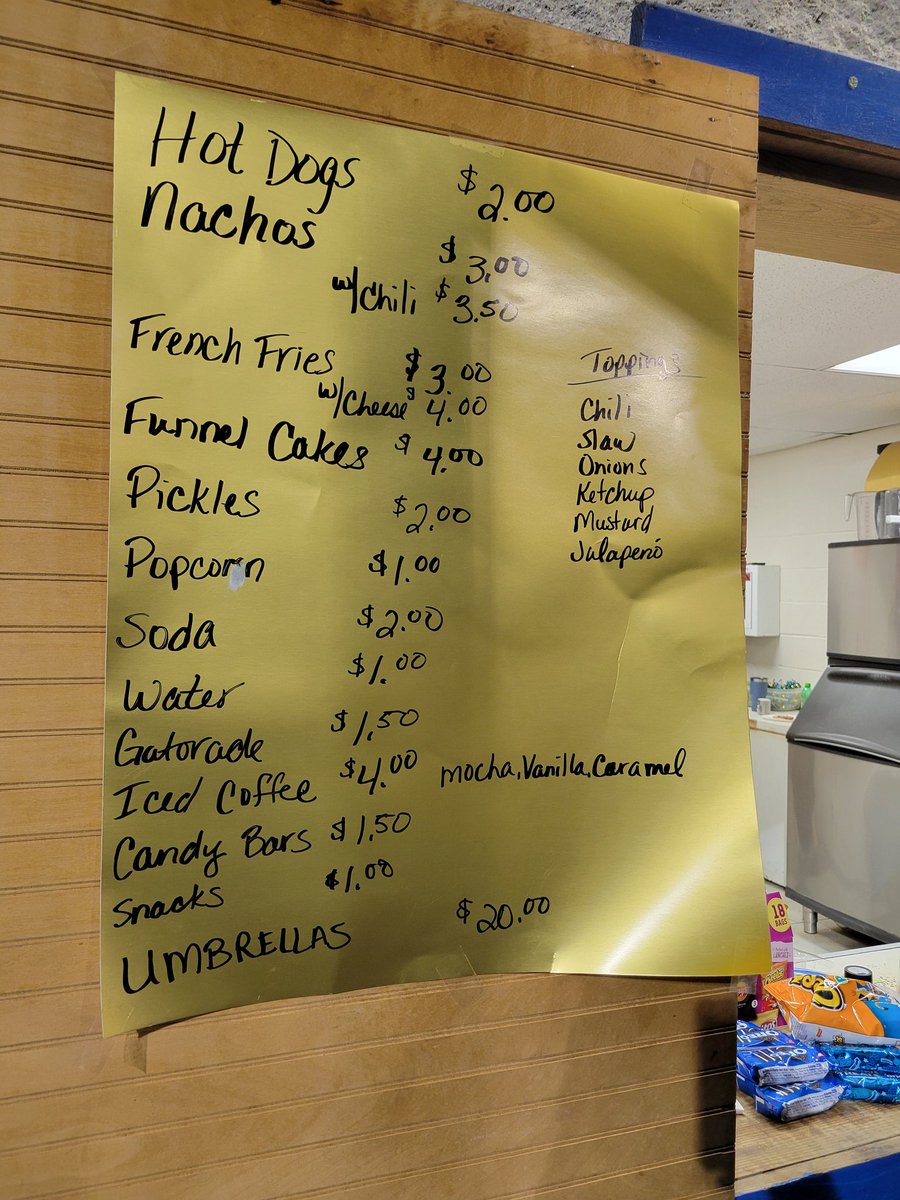 Hot Dogs $2.00
Nachos $3.00
w/Chili $3.50
French Fries $3.00
w/Cheese $4.00
Funnel Cakes $4.00
Pickles $2.00
Popcorn $1.00
Soda $2.00
Water $1.00
Gatorade $1.50
Iced Coffee $4.00 mocha, Vanilla, Caramel
Candy Bars $1.50
Snacks $1.00
UMBRELLAS $20.00
Toppings
Chili
Slaw
Onions
Ketchup
Mustard
Jalapenó
18
BAGS